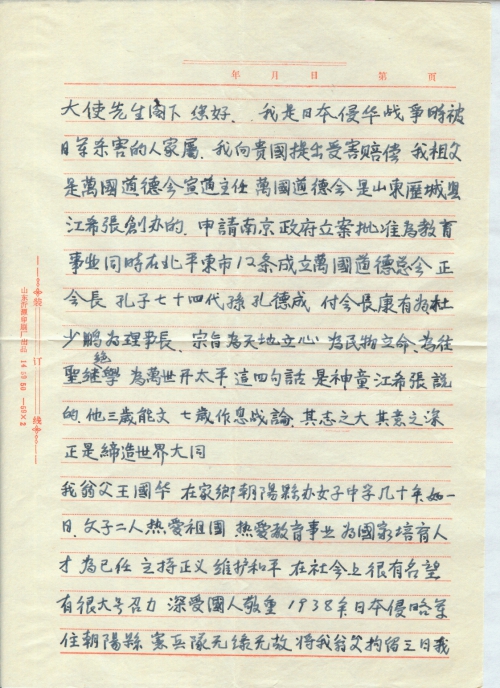 年 月 日 第 页
大使先生阁下 您好. 我是日本侵华战争时被
日军杀害的人家属. 我向贵國提出受害赔偿 我祖父
是萬國道德会宣道主任 萬國道德会是山東歷城县
江希張創办的. 申請南京政府立案批准為教育
事业同時在北平東市12条成立萬國道德总会 正
会長 孔子七十四代孫孔德成 付会長康有為杜
少鹏为理事長. 宗旨為天地立心 為民物立命. 為往
聖继绝學 為萬世开太平. 這四句話 是神童江希張說
的. 他三歲能文 七歲作息战論. 其志之大 其意之深
正是締造世界大同
我翁父王國华 在家鄉朝陽縣办女子中学几十年如一
日. 父子二人热愛祖國 热愛教育事业 为國家培育人
才 為己任 主持正义 维护和平 在社会上很有名望
有很大号召力 深愛國人敬重 1938年日本侵略军
住朝陽縣 憲兵隊无缘无故 将我翁父拘留三日我
装 订 线